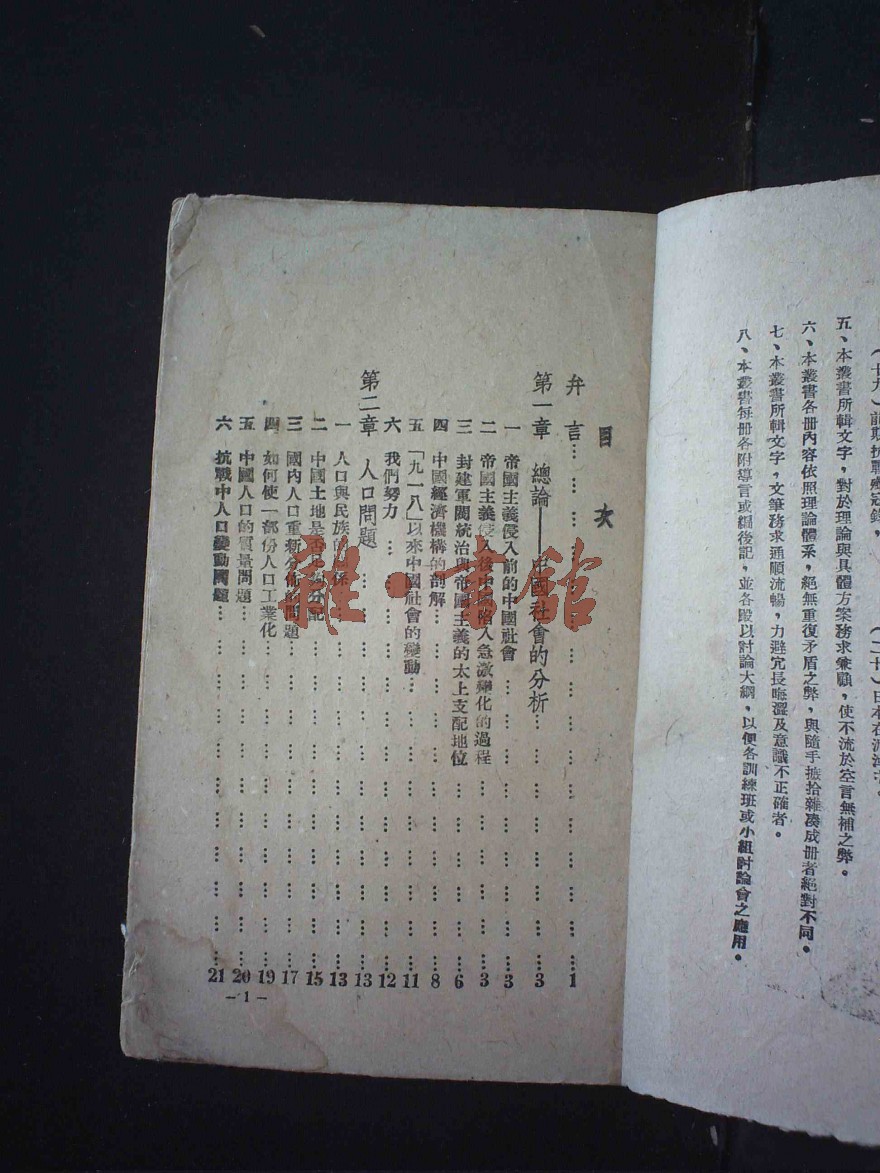 五、本叢書所輯文字，對於理論與具體方案務求兼顧，使不流於空言無補之弊。
六、本叢書各册內容依照理論體系，絕無重復矛盾之弊，與隨手摭拾雜湊成册者絕對不同。
七、本叢書所輯文字，文筆務求通順流暢，力避冗長晦澀及意識不正確者。
八、本叢書每册各附導言或編後記，並各殿以討論大綱，以便各訓練班或小組討論會之應用。
目次
弁言 1
第一章 總論——中國社會的分析 3
一 帝國主義侵入前的中國社會 3
二 帝國主義侵入後中國陷入急激變化的過程 3
三 封建軍閥統治與帝國主義的太上支配地位 6
四 中國經濟機構的剖解 8
五 「九一八」以來中國社會的變動 11
六 我們努力 12
第二章 人口問題 13
一 人口與民族的關係 13
二 中國土地是否足夠分配 15
三 國內人口重新分佈的問題 17
四 如何使一部份人口工業化 19
五 中國人口的質量問題 20
六 抗戰中人口變動問題 21
—1—
雜·書館